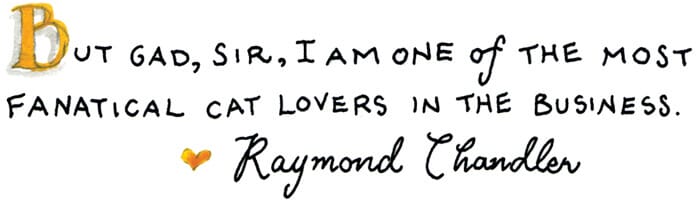 BUT GAD, SIR, I AM ONE of THE MOST
FANATICAL CAT LOVERS IN THE BUSINESS.
Raymond Chandler